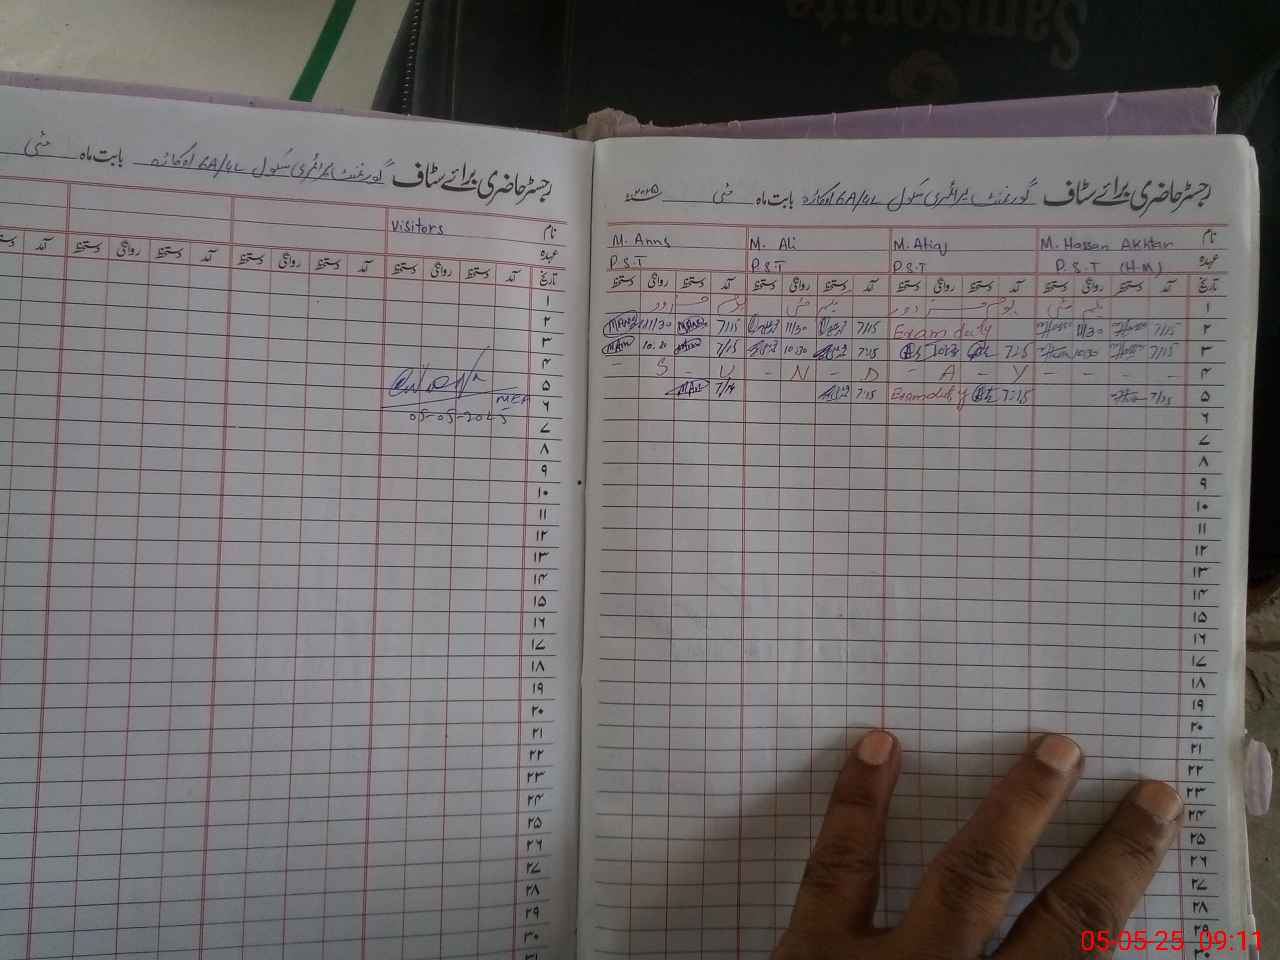 Samsonite
رجسٹر حاضری برائے سٹاف گورنمنٹ پرائمری سکول 6A/4L اوکاڑہ بابت ماہ مئی
نام Visitors
عہدہ
تاریخ آمد دستخط روانگی دستخط آمد دستخط روانگی دستخط آمد
۱
۲
۳
۴
۵
۶ 05-05-2025
۷
۸
۹
۱۰
۱۱
۱۲
۱۳
۱۴
۱۵
۱۶
۱۷
۱۸
۱۹
۲۰
۲۱
۲۲
۲۳
۲۴
۲۵
۲۶
۲۷
۲۸
۲۹
۳۰
۳۱
رجسٹر حاضری برائے سٹاف گورنمنٹ پرائمری سکول 6A/4L اوکاڑہ بابت ماہ مئی ۲۰۲۵
نام M. Hassan Akhtar M. Atiq M. Ali M. Anns
عہدہ P.S.T (H.M) P.S.T P.S.T P.S.T
تاریخ آمد دستخط روانگی دستخط آمد دستخط روانگی دستخط آمد دستخط روانگی دستخط آمد دستخط روانگی دستخط
۱ یکم مئی یوم مزدور یکم مئی یوم مزدور
۲ 7/15 11/30 Exam duty 7/15 11/30 7/15 11/30
۳ 7/15 10:30 7:15 10:30 7:15 10:30 7/15 10:30
۴ - S - U - N - D - A - Y - - - -
۵ 7/15 7:15 Exam duty 7:15 7/14
۶
۷
۸
۹
۱۰
۱۱
۱۲
۱۳
۱۴
۱۵
۱۶
۱۷
۱۸
۱۹
۲۰
۲۱
۲۲
۲۳
۲۴
۲۵
۲۶
۲۷
۲۸
۲۹
۳۰
05-05-25 09:11